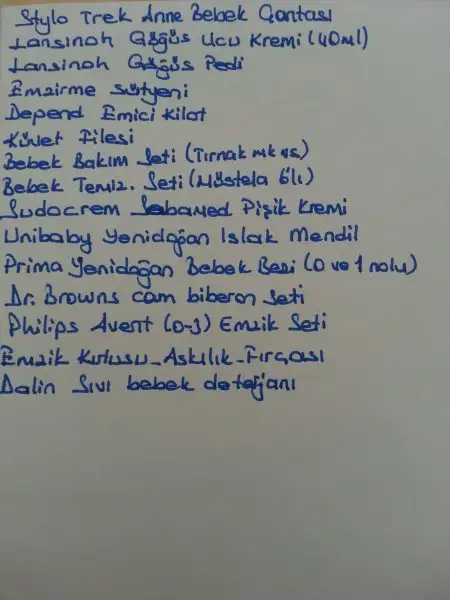 Stylo Trek Anne Bebek Çantası
Lansinoh Göğüs Ucu Kremi (40ml)
Lansinoh Göğüs Pedi
Emzirme Sütyeni
Depend Emici Kilot
Küvet Filesi
Bebek Bakım Seti (Tırnak mk vs)
Bebek Temiz. Seti (Müstela 6'lı)
Sudocrem Sebamed Pişik Kremi
Unibaby Yenidoğan Islak Mendil
Prima Yenidoğan Bebek Bezi (0 ve 1 nolu)
Dr. Browns cam biberon Seti
Philips Avent (0-3) Emzik Seti
Emzik Kutusu - Askılık - Fırçası
Dalin Sıvı bebek deterjanı